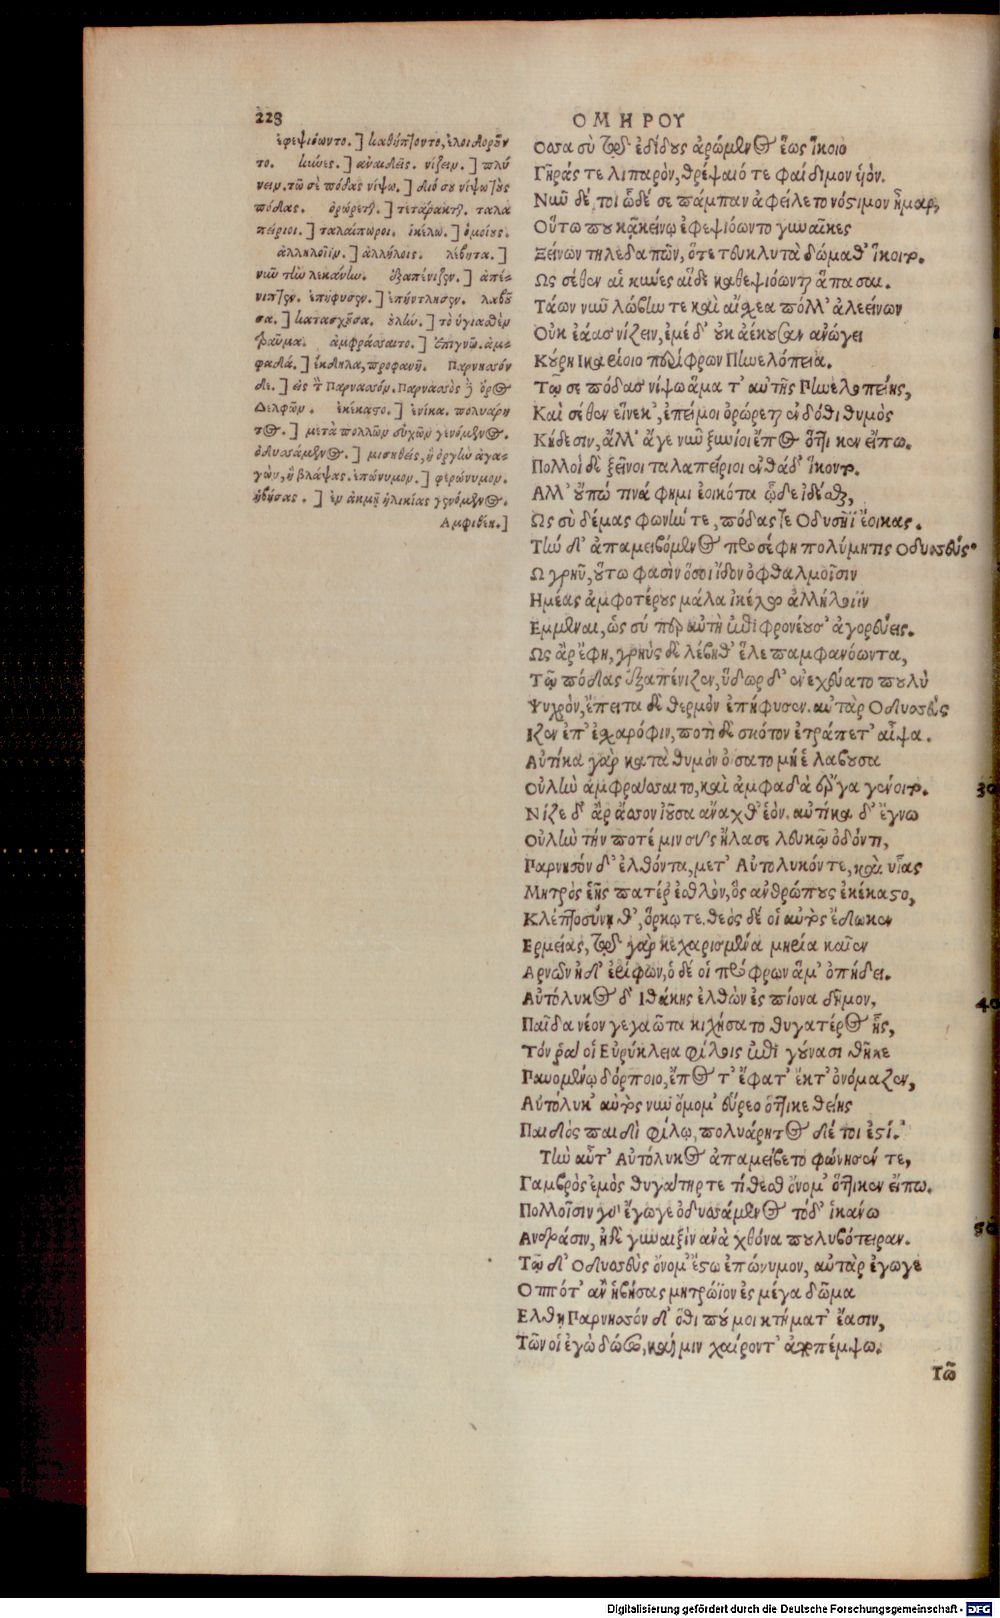 228
ΟΜΗΡΟΥ
ἐφεψιόωντο.] καθήπτοντο, ἐλοιδοροῦν
το. κύνες.] ἀναιδεῖς. νίζειν.] πλύ
νειν. τῶ σὲ πόδας νίψω.] διό σου νίψω τοὺς
πόδας. ὀρώρεται.] τετάρακται. ταλα
πείριοι.] ταλαίπωροι. ἰκέλω.] ὁμοίους.
ἀλλήλοιϊν.] ἀλλήλοις. λέβητα.]
νιῦ τὴν λεκάνην. ἐξαπένιζεν.] ἀπέ-
νιπτεν. ἐπήφυσεν.] ἐπήντλησεν. λαβοῦ
σα.] κατασχοῦσα. οὐλὴν.] τὸ ὑγιασθὲν
τραῦμα. ἀμφράσσαιτο.] ἐπιγνῷ. ἀμ-
φαδά.] ἔκδηλα, προφανῆ. Παρνησσόν
δε.] εἰς τὸ Παρνασσόν. Παρνασσὸς δὲ ὄρος
Δελφῶν. ἐκέκαστο.] ἐνίκα. πολυάρη
τος.] μετὰ πολλῶν εὐχῶν γενόμενος.
ὀδυσσάμενος.] μισηθείς, ἢ ὀργὴν ἀγα-
γὼν, ἢ βλάψας. ἐπώνυμον.] φερώνυμον.
ἡβήσας.] ἐν ἀκμῇ ἡλικίας γενόμενος.
Ἀμφιβεη.]
Οσσα σὺ τῷδ' ἐδίδους ἀρώμενος ἕως ἵκοιο
Γῆράς τε λιπαρὸν, θρέψαιό τε φαίδιμον υἱόν.
Νῦν δέ τοι ὧδέ σε πάμπαν ἀφείλετο νόστιμον ἦμαρ,
Οὕτω που κᾀκείνῳ ἐφεψιόωντο γυναῖκες
Ξείνων τηλεδαπῶν, ὅτε τευ κλυτὰ δώμαθ' ἵκοιτο.
Ως σέθεν αἱ κύνες αἵδε καθεψιόωνται ἅπασαι.
Τάων νῦν λώβην τε καὶ αἴσχεα πόλλ' ἀλεείνων
Οὐκ ἐάας νίζειν, ἐμέ δ' οὐκ ἀέκουσαν ἀνώγει
Κύρη Ικαρίοιο περίφρων Πηνελόπεια.
Τῷ σε πόδας νίψω ἅμα τ' αὐτῆς Πηνελοπείης,
Καὶ σέθεν εἵνεκ', ἐπεί μοι ὀρώρεται ἔνδοθι θυμὸς
Κήδεσιν, ἄλλ' ἄγε νῦν ξυνίοι ἔπος ὅττι κεν εἴπω.
Πολλοὶ δὲ ξεῖνοι ταλαπείριοι ἐνθάδ' ἵκοντο.
Αλλ' οὔπώ τινά φημι ἐοικότα ὧδε ἰδέσθαι,
Ως σὺ δέμας φωνήν τε, πόδας τε Οδυσῆϊ ἔοικας.
Τὴν δ' ἀπαμειβόμενος προσέφη πολύμητις Οδυσσεύς.
Ω γρηῦ, οὕτω φασὶν ὅσοι ἴδον ὀφθαλμοῖσιν
Ημέας ἀμφοτέρους μάλα ἰκέλω ἀλλήλοιϊν
Εμμεναι, ὡς σύ περ αὐτὴ ἐπιφρονέουσ' ἀγορεύεις.
Ως ἄρ ἔφη, γρηῢς δὲ λέβηθ' ἕλε παμφανόωντα,
Τῷ πόδας ἐξαπένιζεν, ὕδωρ δ' ἐνεχεύατο πουλὺ
Ψυχρὸν, ἔπειτα δὲ θερμὸν ἐπήφυσεν. αὐτὰρ Οδυσσεὺς
Ιζεν ἐπ' ἐσχαρόφιν, ποτὶ δὲ σκότον ἐτράπετ' αἶψα.
Αὐτίκα γὰρ κατὰ θυμὸν ὀΐσατο μή ἑ λαβοῦσα
Οὐλὴν ἀμφράσσαιτο, καὶ ἀμφαδὰ ἔργα γένοιτο.
Νίζε δ' ἄρ ἄσσον ἰοῦσα ἄναχθ' ἑόν. αὐτίκα δ' ἔγνω
Οὐλὴν τήν ποτέ μιν σῦς ἤλασε λευκῷ ὀδόντι,
Παρνησόνδ' ἐλθόντα, μετ' Αὐτόλυκόν τε, καὶ υἷας
Μητρὸς ἑῆς πατέρ' ἐσθλὸν, ὃς ἀνθρώπους ἐκέκαστο,
Κλεπτοσύνῃ θ', ὅρκῳ τε. θεὸς δέ οἱ αὐτὸς ἔδωκεν
Ερμείας, τῷδ' γὰρ κεχαρισμένα μηρία καῖεν
Αρνῶν ἠδ' ἐρίφων, ὁ δέ οἱ πρόφρων ἅμ' ὀπήδει.
Αὐτόλυκος δ' Ιθάκης ἐλθὼν ἐς πίονα δῆμον,
Παῖδα νέον γεγαῶτα κιχήσατο θυγατέρος ἧς,
Τόν ῥά οἱ Εὐρύκλεια φίλοις ἐπὶ γούνασι θῆκε
Παυομένῳ δόρποιο, ἔπος τ' ἔφατ' ἔκτ' ὀνόμαζεν,
Αὐτόλυκ' αὐτὸς νῦν ὄνομ' εὕρεο ὅττι κε θείης
Παιδὸς παιδὶ φίλῳ, πολυάρητος δέ τοι ἐστί.
Τὴν αὖτ' Αὐτόλυκος ἀπαμείβετο φώνησέν τε,
Γαμβρὸς ἐμὸς θυγάτηρ τε τίθεσθ ὄνομ' ὅττι κεν εἴπω.
Πολλοῖσιν γὰρ ἔγωγε ὀδυσσάμενος τόδ' ἱκάνω
Ανδράσιν, ἠδὲ γυναιξὶν ἀνὰ χθόνα πουλυβότειραν.
Τῷ δ' Οδυσσεὺς ὄνομ' ἔστω ἐπώνυμον, αὐτὰρ ἐγωγε
Οππότ' ἂν ἡβήσας μητρώϊον ἐς μέγα δῶμα
Ελθῃ Παρνησσόνδ' ὅθι πού μοι κτήματ' ἔασιν,
Τῶν οἱ ἐγὼ δώσω, καί μιν χαίροντ' ἀποπέμψω.
Τῶ
30
40
50
Digitalisierung gefördert durch die Deutsche Forschungsgemeinschaft - DFG